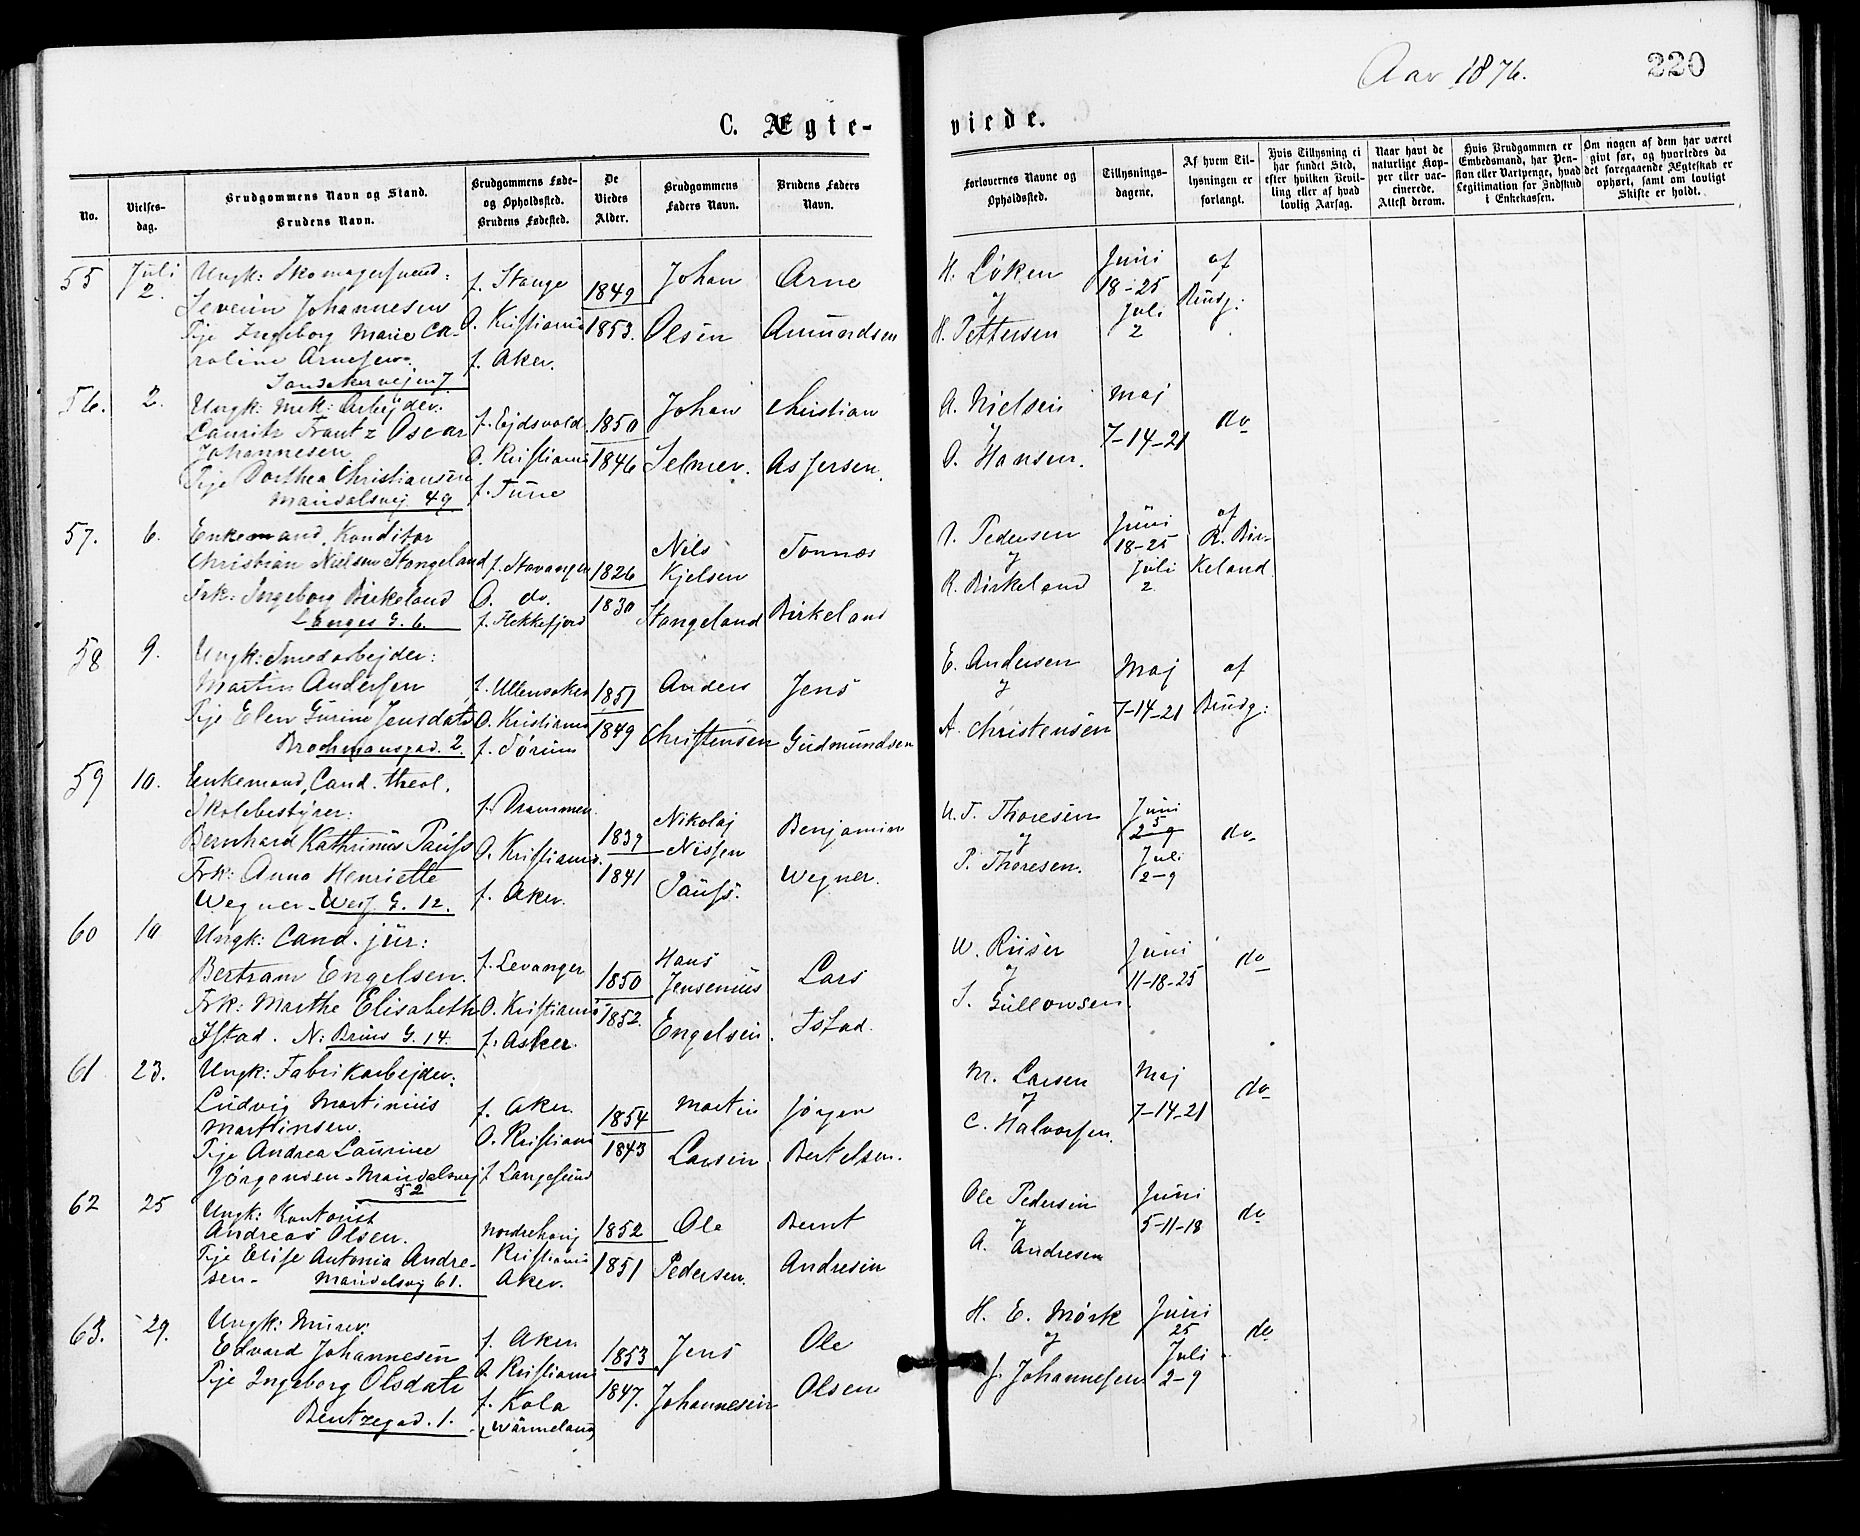 Aar 1876.
220
C. Ægte-
viede.
No.
Vielses-
dag.
Brudgommens Navn og Stand.
Brudens Navn.
Brudgommens Føde-
og Opholdssted.
Brudens Fødested.
De
Viedes
Alder.
Brudgommens
Faders Navn.
Brudens Faders
Navn.
Forlovernes Navne og
Opholdssted.
Tillysnings-
dagene.
Af hvem Til-
lysningen er
forlangt.
Hvis Tillysning ei
har fundet Sted,
efter hvilken Bevil-
ling eller af hvad
lovlig Aarsag.
Naar havt de
naturlige Kop-
per eller vac-
cinerede.
Attest derom.
Hvis Brudgommen er
Embedsmand, har Pen-
sion eller Vartpenge, hvad
Legitimation for Indskud
i Enkekassen.
Om nogen af dem har været
givt før, og hvorledes da
det foregaaende Ægteskab er
ophørt, samt om lovligt
Skifte er holdt.
55
Juli
2.
Ungk: Skomagersvend:
Severin Johannesen
Pije Ingeborg Marie Ca-
roline Arnesen.
Sandakervejen 7
f. Stange
O. Kristiania
f. Aker.
1849
1853.
Johan
Olsen
Arne
Amundsen
H. Løken
og
H. Pettersen
Juni
18-25
Juli
2
af
Brudg:
56.
2.
Ungk: Mek: Arbejder:
Lauritz Frantz Oscar
Johannesen
Pije Dorthea Christiansen
Maridalsvej 49
f. Ejdsvold
O. Kristiania
f. Tune
1850
1846
Johan
Selmer.
Christian
Asjersen.
A. Nielsen
og
O. Hansen.
Maj
7-14-21
do
57.
6.
Enkemand, Konditor
Christian Nielsen Stangeland
Frk: Ingeborg Birkeland
Langes G. 6.
f. Stavanger
O. do.
f. Flekkefjord
1826
1830
Nils
Kjelsen
Stangeland
Tonnas
Birkeland
Pedersen
og
R. Birkeland
Juni
18-25
Juli
2.
af
R. Bir-
keland
58
9.
Ungk: Smedarbejder:
Martin Andersen
Pije Elen Gurine Jensdatr
Brochmansgad. 2.
f. Ullensaker
O. Kristiania
f. Sørum
1851
1849
Anders
Christensen
Jens
Gudmundsen
E. Andersen
og
A. Christensen
Maj
7-14-21
af
Brudg:
59
10.
Enkemand, Cand. theol.
Skolebestyrer:
Bernhard Kathrinus Pauss
Frk: Anna Henriette
Wegner - Wess. G. 12.
f. Drammen
O. Kristiania.
f. Aker.
1839
1841
Nikolaj
Nissen
Pauss.
Benjamin
Wegner.
N. T. Thoresen
og
P. Thoresen.
Juni
25
Juli
2-9
do
60
10
Ungk: Cand. jur:
Bertram Engelsen.
Frk: Marthe Elisabeth
Istad. N: Bruns G. 14.
f. Levanger
O. Kristiania
f. Asker.
1850
1852.
Hans
Jensenius
Engelsen.
Lars
Istad.
W. Riiser
og
S. Gullowsen.
Juni
11-18-25
do
61
23.
Ungk: Fabrikarbejder:
Ludvig Martinius
Martinsen.
Pije Andrea Laurine
Jørgensen - Maridalsvej
52
f. Aker.
O. Kristiania
f. Langesund
1854
1843
Martin
Larsen
Jørgen
Bertelsen.
M. Larsen
og
C. Halvorsen.
Maj
7-14-21
do
62
25
Ungk: Kontorist
Andreas Olsen.
Pije Elise Antonia Andre-
sen - Maridalsvej 61.
Norderhov
Kristiania
Aker.
1852
1851
Ole
Pedersen.
Bernt
Andresen
Ole Pedersen
og
A. Andresen
Juni
5-11-18
do
63.
29.
Ungk: Murer.
Edvard Johannesen
Pije Ingeborg Olsdatr
Bentzegad. 1.
f. Aker
O. Kristiania
f. Kola
(Wärmeland)
1853
1847.
Jens
Johannesen
Ole
Olsen
H. E. Mørk
og
J. Johannesen
Juni
25
Juli
2-9
do